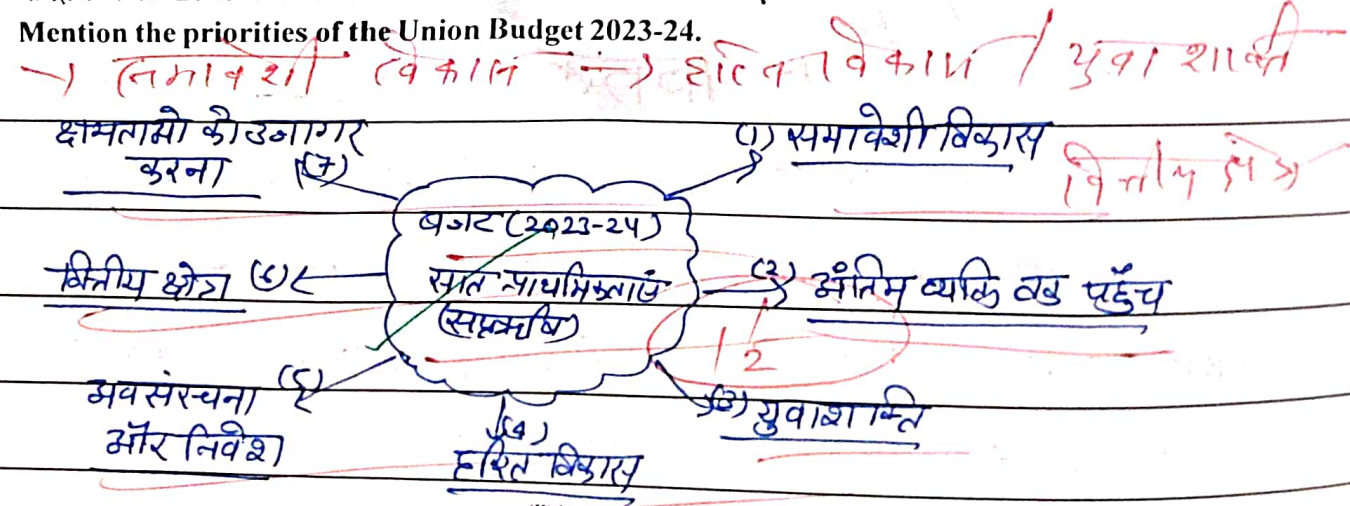 Mention the priorities of the Union Budget 2023-24.
→ समावेशी विकास → हरित विकास / युवा शक्ति
वित्तीय क्षेत्र
क्षमताओ को उजागर
करना (7)
(1) समावेशी विकास
बजट (2023-24)
सात प्राथमिकताएं
(सप्तऋषि)
वित्तीय क्षेत्र (6)
(2) अंतिम व्यक्ति तक पहुँच
1/2
अवसंरचना (5)
और निवेश
(4)
हरित विकास
(3) युवाशक्ति